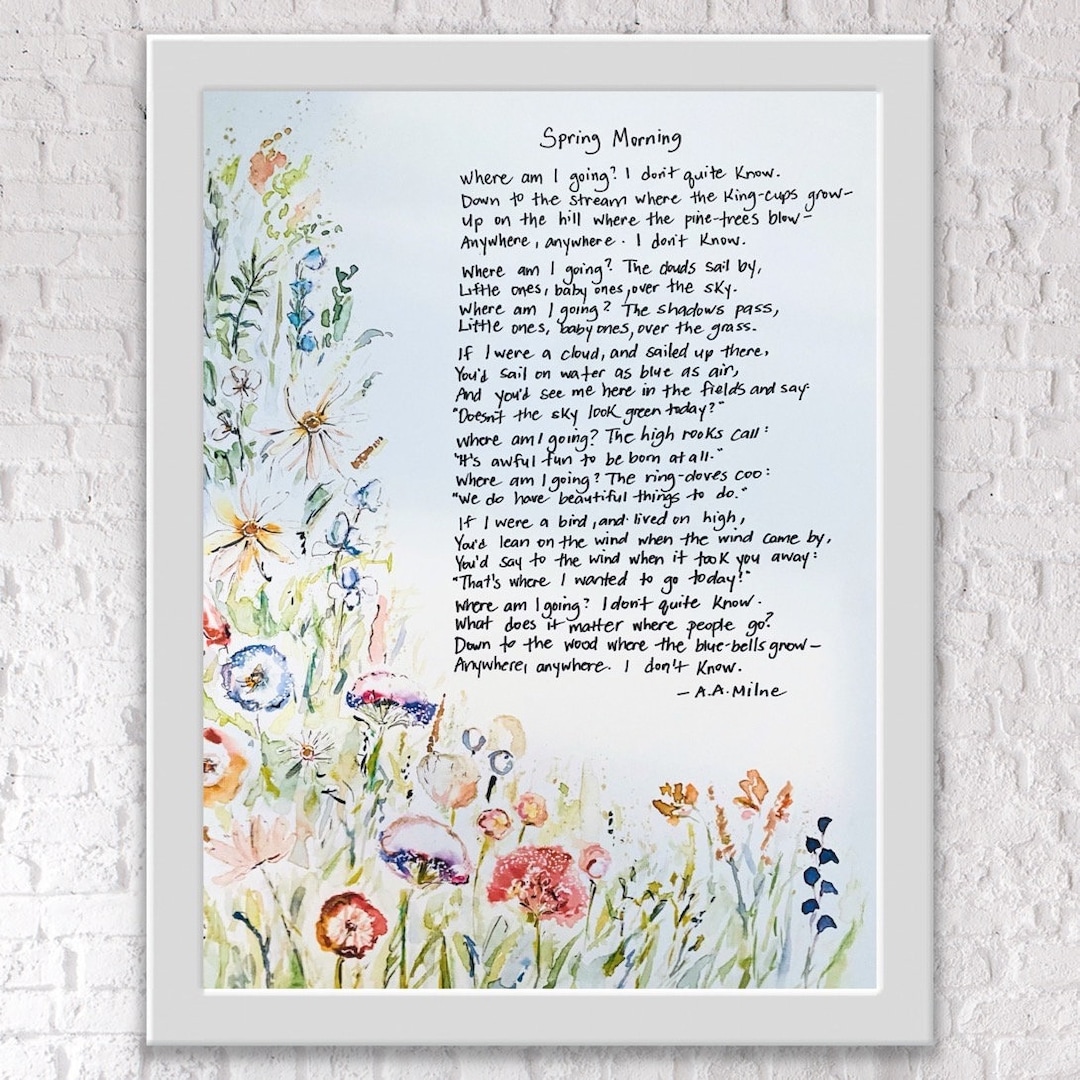 Spring Morning
Where am I going? I don't quite Know.
Down to the stream where the King-cups grow-
Up on the hill where the pine-trees blow-
Anywhere, anywhere. I don't Know.
Where am I going? The clouds sail by,
Little ones, baby ones, over the sky.
Where am I going? The shadows pass,
Little ones, baby ones, over the grass.
If I were a cloud, and sailed up there,
You'd sail on water as blue as air,
And you'd see me here in the fields and say:
"Doesn't the sky look green today?"
Where am I going? The high rooks call:
"It's awful fun to be born at all."
Where am I going? The ring-doves coo:
"We do have beautiful things to do."
If I were a bird, and lived on high,
You'd lean on the wind when the wind came by,
You'd say to the wind when it took you away:
"That's where I wanted to go today!"
Where am I going? I don't quite Know.
What does it matter where people go?
Down to the wood where the blue-bells grow-
Anywhere, anywhere. I don't Know.
- A.A. Milne